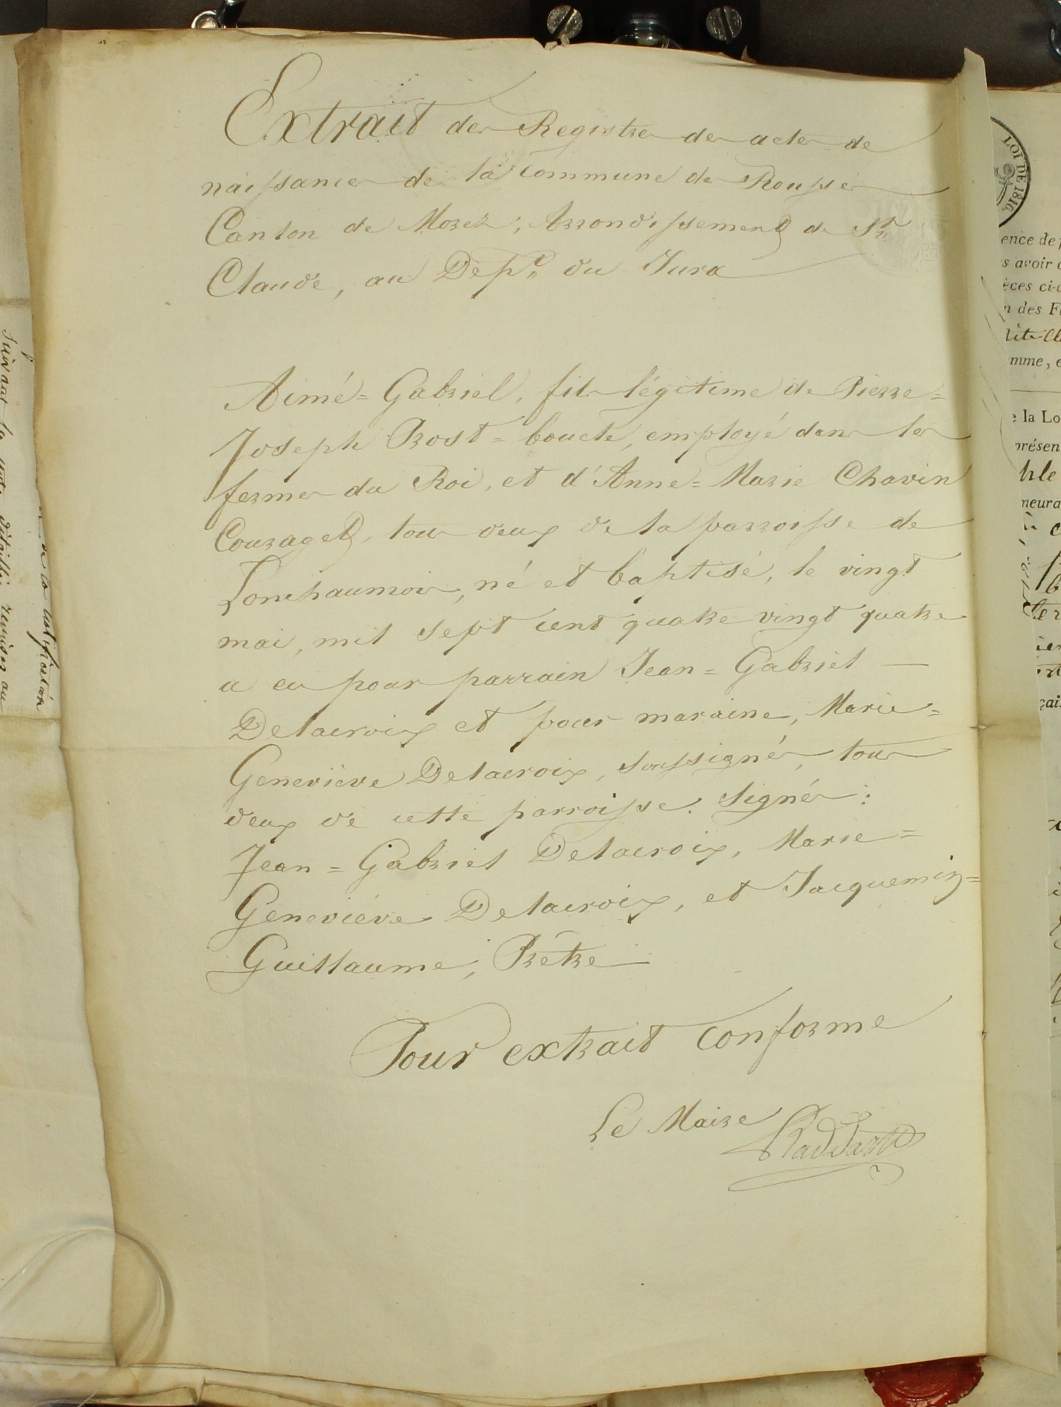 Extrait des Registres des actes de
naissances de la Commune de Rousses
Canton de Morez, Arrondissement de St
Claude, au Dépt du Jura
Aimé=Gabriel, fils légitime de Pierre=
Joseph Prost=boucle, employé dans les
fermes du Roi, et d'Anne=Marie Chavin
Couraget, tous deux de la parroisse de
Lonchaumois, né et baptisé, le vingt
mai, mil sept cent quatre vingt quatre
a eu pour parrain Jean=Gabriel —
Delacroix et pour maraine, Marie=
Geneviève Delacroix, soussignés, tous
deux de cette parroisse. Signés:
Jean=Gabriel Delacroix, Marie=
Geneviève Delacroix, et Jacquemin=
Guillaume, Prêtre
Pour extrait conforme
Le Maire
LOI DE 1816
ence de
s avoir
èces ci-
n des F
mme, e
e la Lo
présen
neura